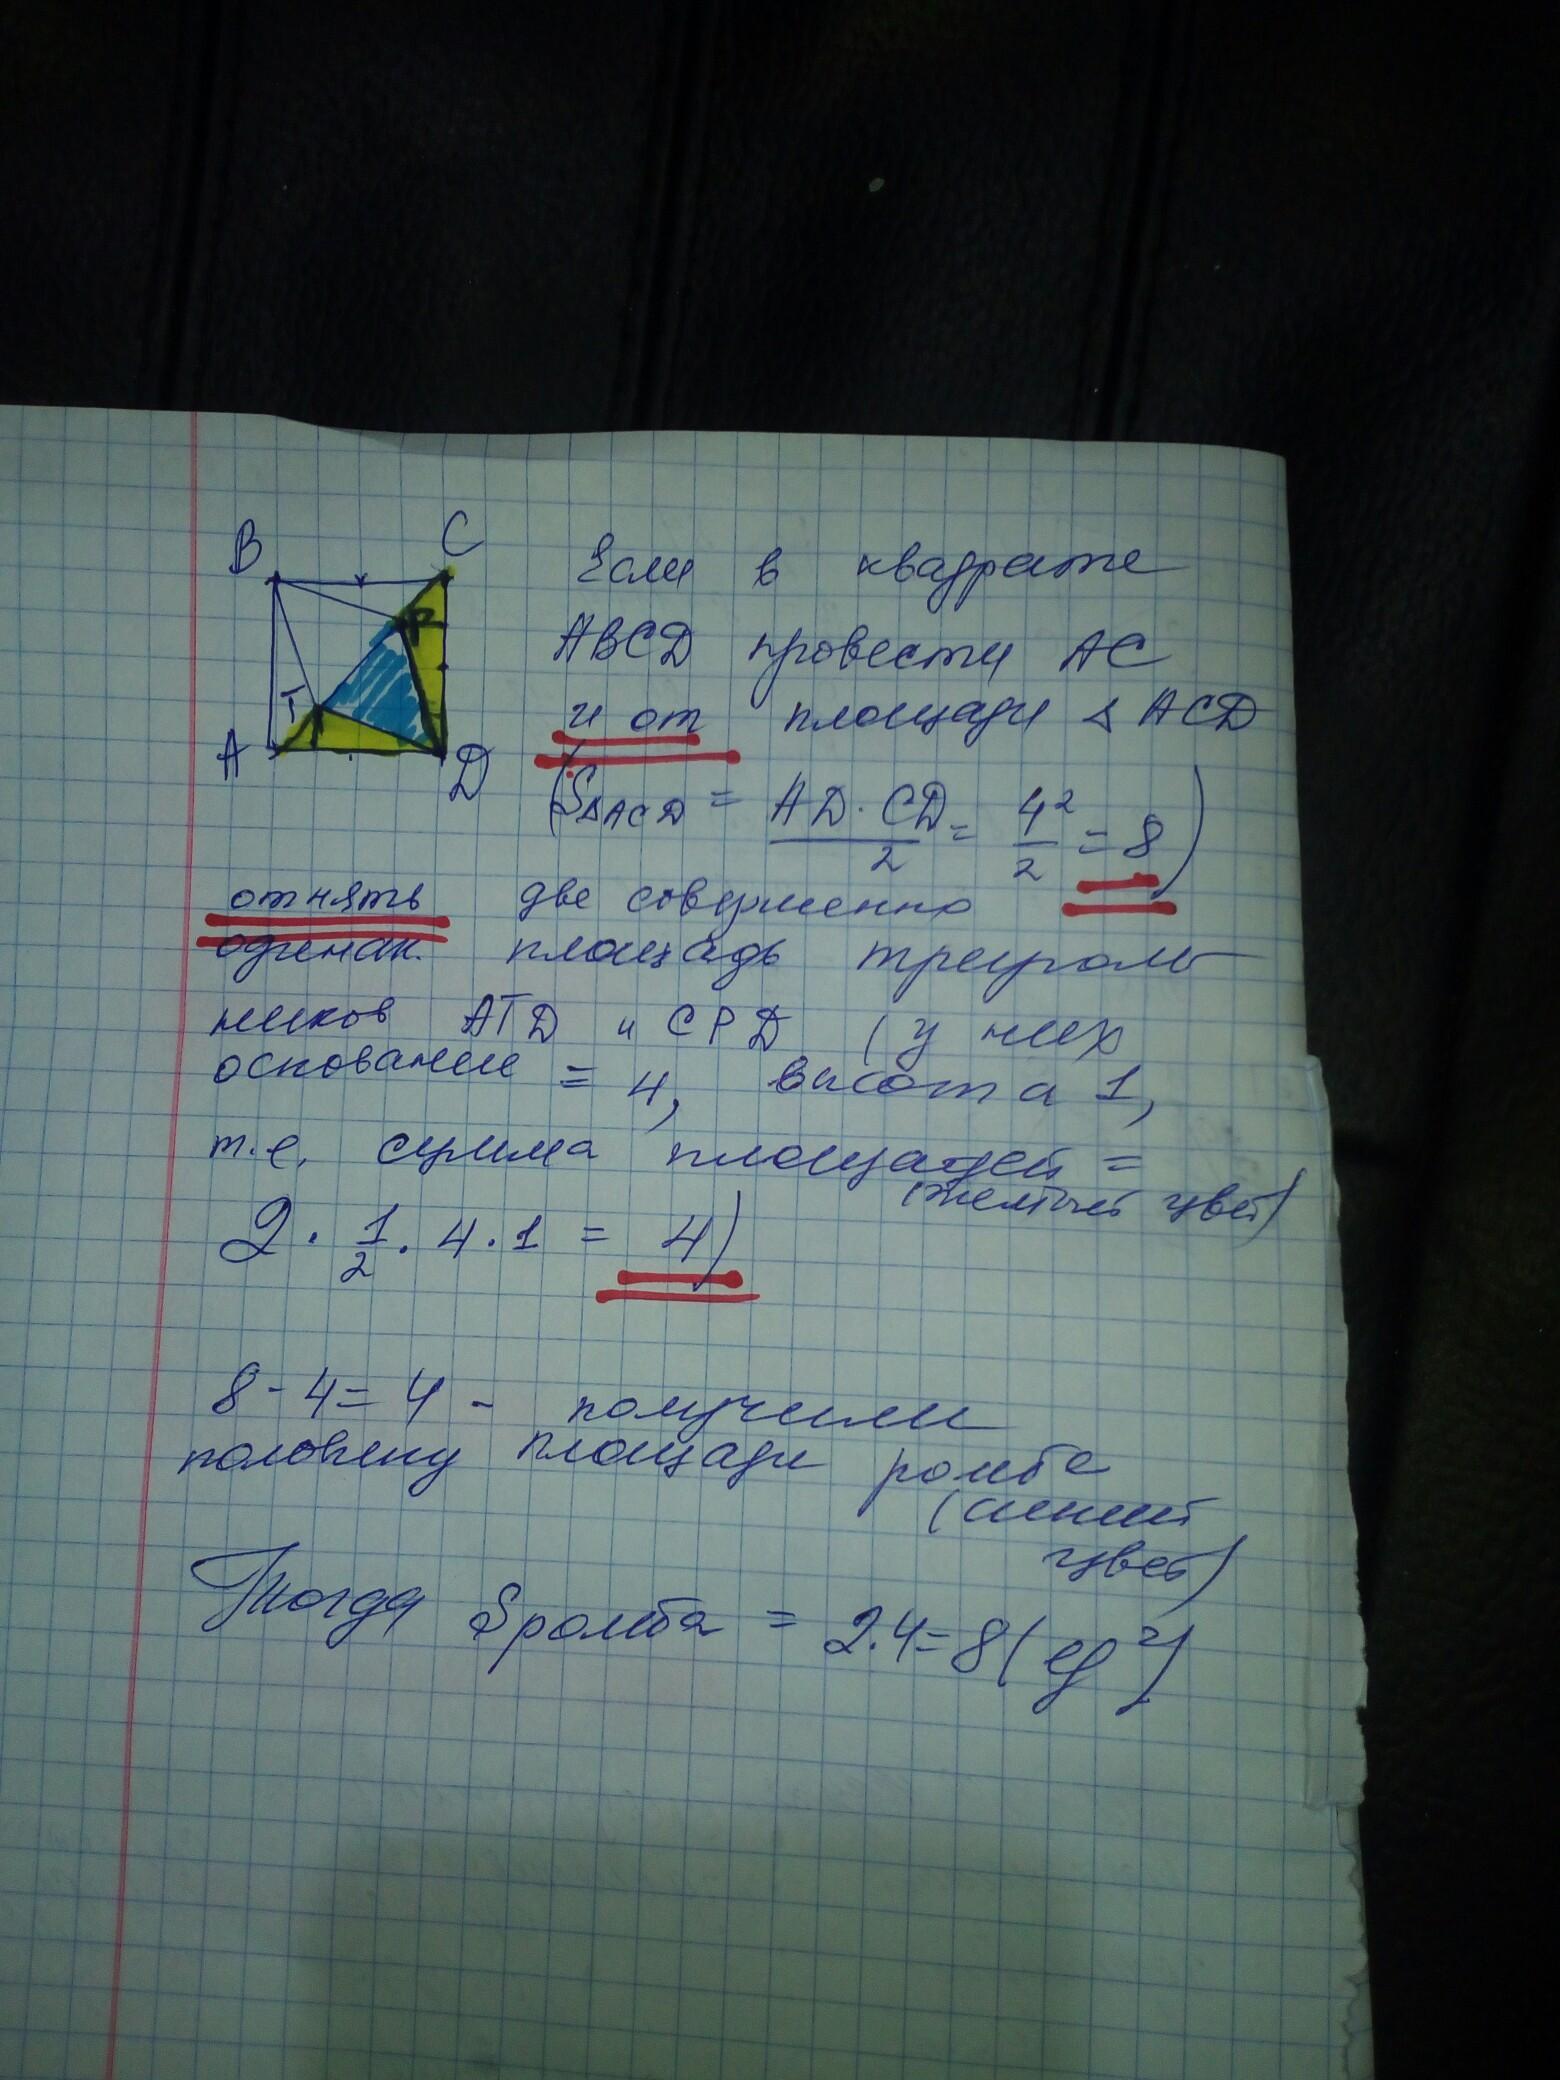 B C
T P
A D
Если в квадрате
ABCD провести AC
и от площади Δ ACD
(SΔACD = AD·CD/2 = 4²/2 = 8)
отнять две совершенно
одинак. площадь треуголь
ников ATD и CPD (у них
основание = 4, высота 1,
т.е. сумма площадей =
(желтый цвет)
2 · 1/2 · 4 · 1 = 4)
8 - 4 = 4 - получили
половину площади ромба
(синий
цвет)
Тогда Sромба = 2·4=8(ед²)